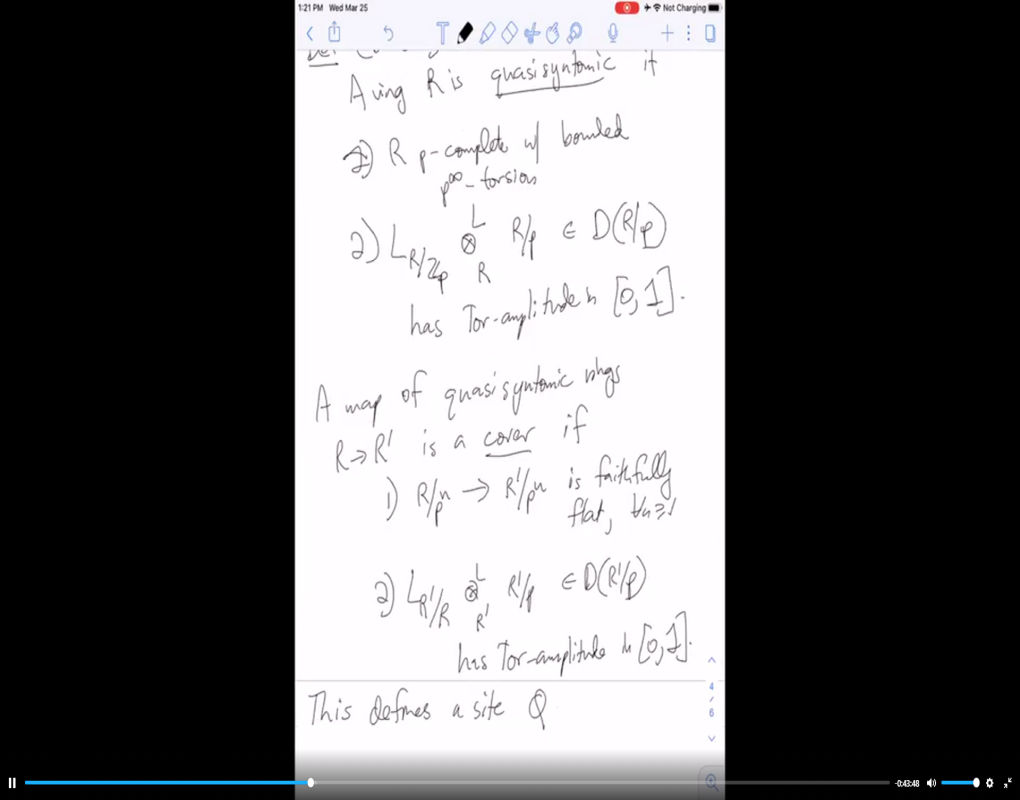 1:21 PM Wed Mar 25
Not Charging
A ring R is quasisyntomic if
1) R p-complete w/ bounded
p^∞-torsion
2) L_{R/ℤ_p} ⊗^L_R R/p ∈ D(R/p)
has Tor-amplitude in [0,1].
A map of quasisyntomic rings
R→R' is a cover if
1) R/p^n → R'/p^n is faithfully
flat, ∀n≥1
2) L_{R'/R} ⊗^L_{R'} R'/p ∈ D(R'/p)
has Tor-amplitude in [0,1].
This defines a site Q
4
/
6
-0:43:48